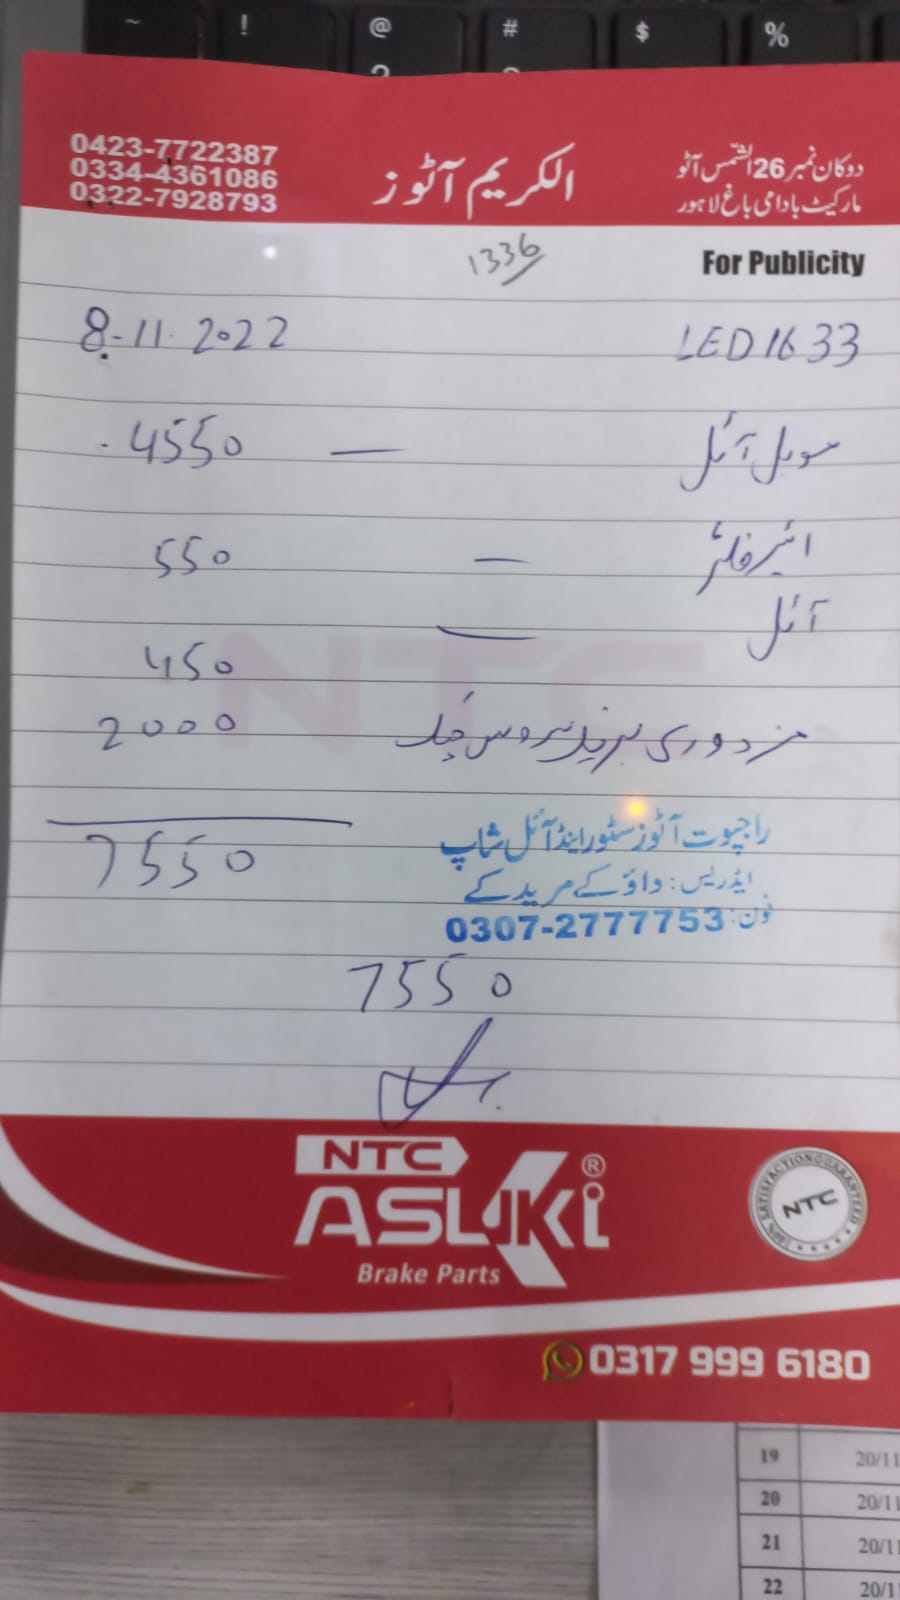 ~ ! @ # $ %
0423-7722387
0334-4361086
0322-7928793
الکریم آٹوز
دوکان نمبر 26 الشمس آٹو
مارکیٹ بادامی باغ لاہور
1336
For Publicity
8-11-2022 LED 1633
موبل آئل — 4550
ائیر فلٹر — 550
آئل — 450
مزدوری بریک سروس چیک 2000
7550
راجپوت آٹوز سٹور اینڈ آئل شاپ
ایڈریس: داؤکے مریدکے
فون: 0307-2777753
7550
NTC
NTC
ASUKi®
Brake Parts
100% SATISFACTION GUARANTEED
NTC
0317 999 6180
19 20/11
20 20/11
21 20/11
22 20/1